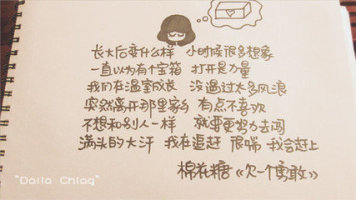 长大后变什么样 小时候很多想象
一直以为有个宝箱 打开是力量
我们在温室成长 没遇过太多风浪
突然离开那里家乡 有点不喜欢
不想和别人一样 就要更努力去闯
满头的大汗 我在追赶 很喘 我会赶上
棉花糖《欠一个勇敢》
"Daila Chlag"